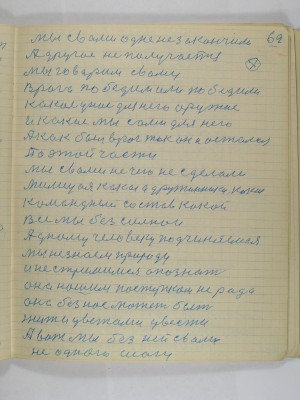 69
мы свами одне незакончили
Адругое неполучается
мы говорим свами
Врага победимили победили
какое у нас для него оружие
и какие мы сами для него
Акак был враг так он и остался
По этой части
мы свами ничего не сделали
Милиция какая дружинники какие
Командный состав какой
Все мы без силной
Адному человеку подчиняемся
мы незнаем природу
и не стремимся опознат
она нашим поступкам не рада
она без нас может быт
жит и цветами цвести
А вот мы без ней свами
не одного шагу